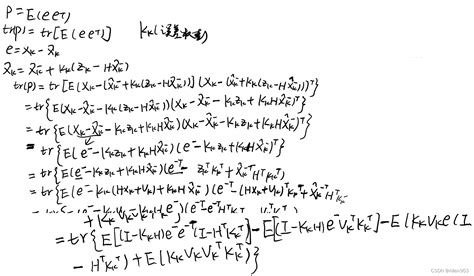 P = E(eeT)
tr(P) = tr[E(eeT)] Kk(误差
e = xk - x̂k
x̂k = x̂k⁻ + Kk(zk - Hx̂k⁻)
tr(P) = tr[E(xk-(x̂k⁻+Kk(zk-Hx̂k⁻)))(xk-(x̂k⁻+Kk(zk-Hx̂k⁻)))ᵀ}
= tr{E(xk-x̂k⁻-Kk(zk-Hx̂k⁻))(xk-x̂k⁻-Kkzk+KkHx̂k⁻)ᵀ}
= tr{E(xk-x̂k⁻-Kkzk+KkHx̂k⁻)(xk-x̂k⁻-Kkzk+KkHx̂k⁻)ᵀ}
= tr{E(e⁻-Kkzk+KkHx̂k⁻)(e⁻-Kkzk+KkHx̂k⁻)ᵀ}
= tr{E(e⁻-Kkzk+KkHx̂k⁻)(e⁻ᵀ-zkᵀKkᵀ+x̂k⁻ᵀHᵀKkᵀ)}
= tr{E(e⁻-Kk(Hxk+Vk)+KkHx̂k⁻)(e⁻ᵀ-(Hxk+Vk)ᵀKkᵀ+x̂k⁻ᵀHᵀKkᵀ
= tr{E[(I-KkH)e⁻e⁻ᵀ(I-HᵀKkᵀ)]-E[(I-KkH)e⁻VkᵀKkᵀ]-E(KkVke(I
-HᵀKkᵀ)+E(KkVkVkᵀKkᵀ)}